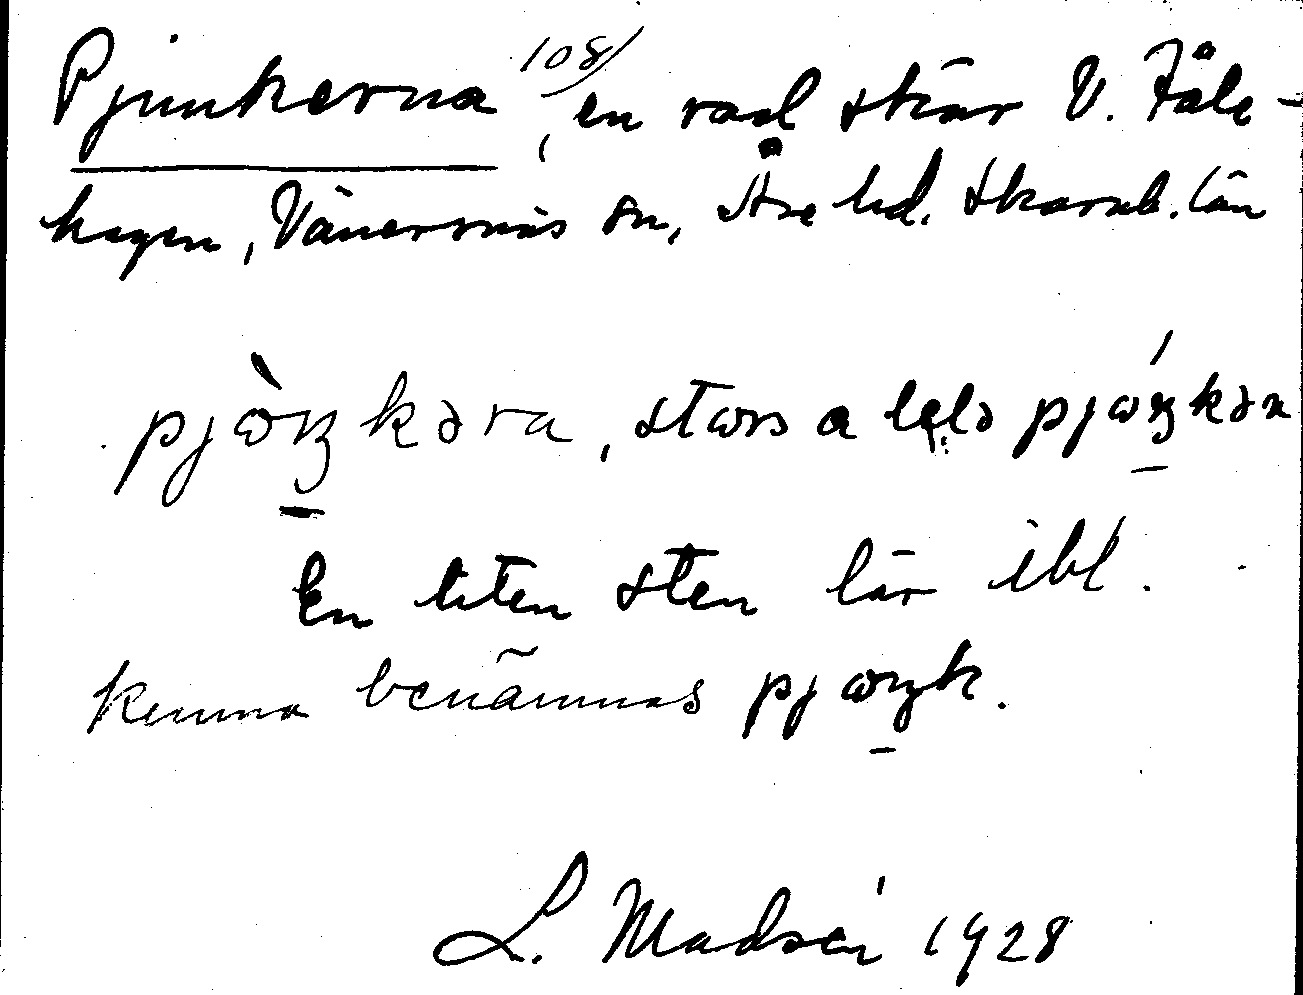 Pjunkerna 108/, en rad skär V. Fåle-
hagen, Vänersnäs sn, Åse hd. Skarab. län
pjɷ̀ŋkəra, stɷrs a lɩlə pjɷ́ŋkən
En liten sten lär ibl.
kunna benämnas pjɷŋk.
L. Madsén 1928